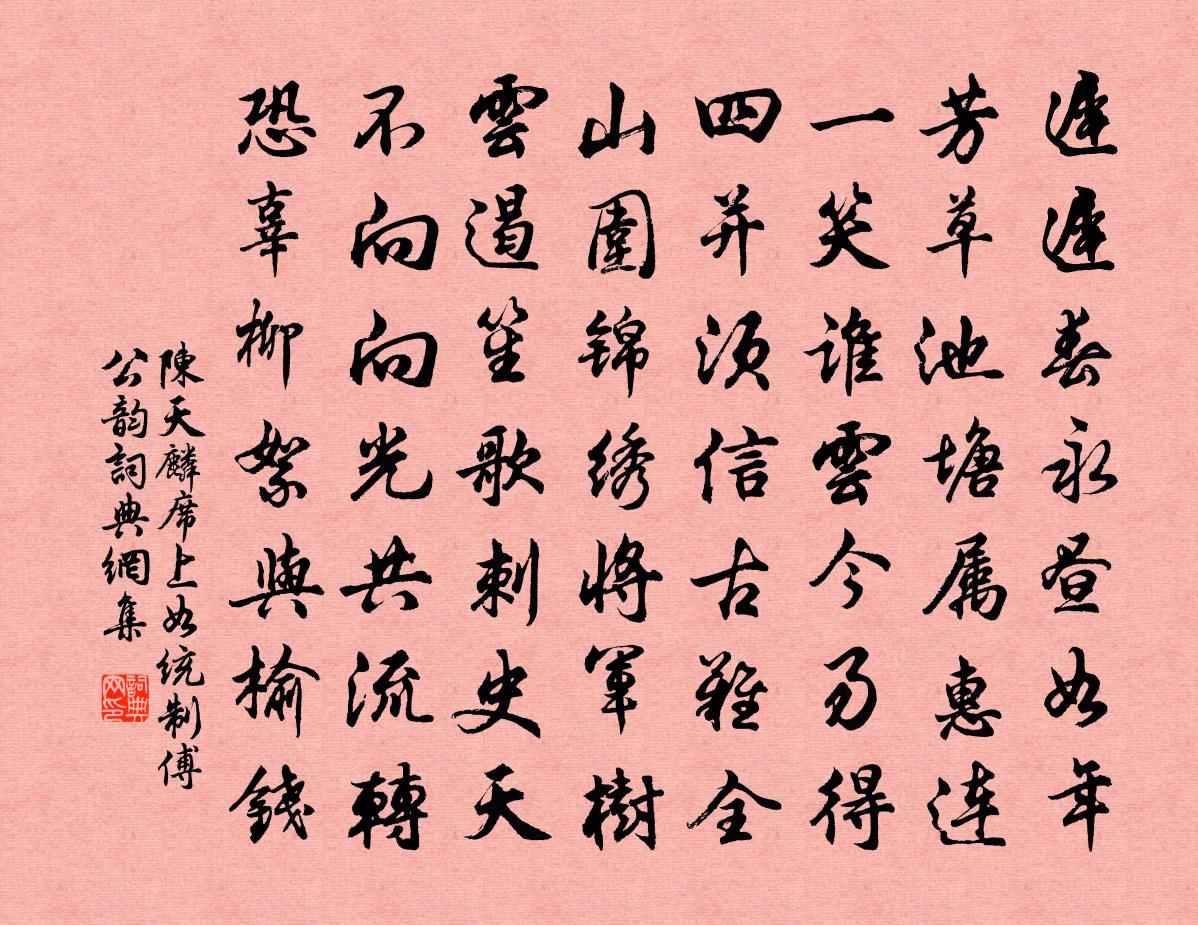 遲遲春永昼如年
芳草池塘属惠連
一笑誰雲今易得
四并須信古難全
山圍錦绣將軍樹
雲遏笙歌刺史天
不向向光共流轉
恐辜柳絮與榆錢
陳天麟席上如統制傅
公韵詞典網集
詞典网印